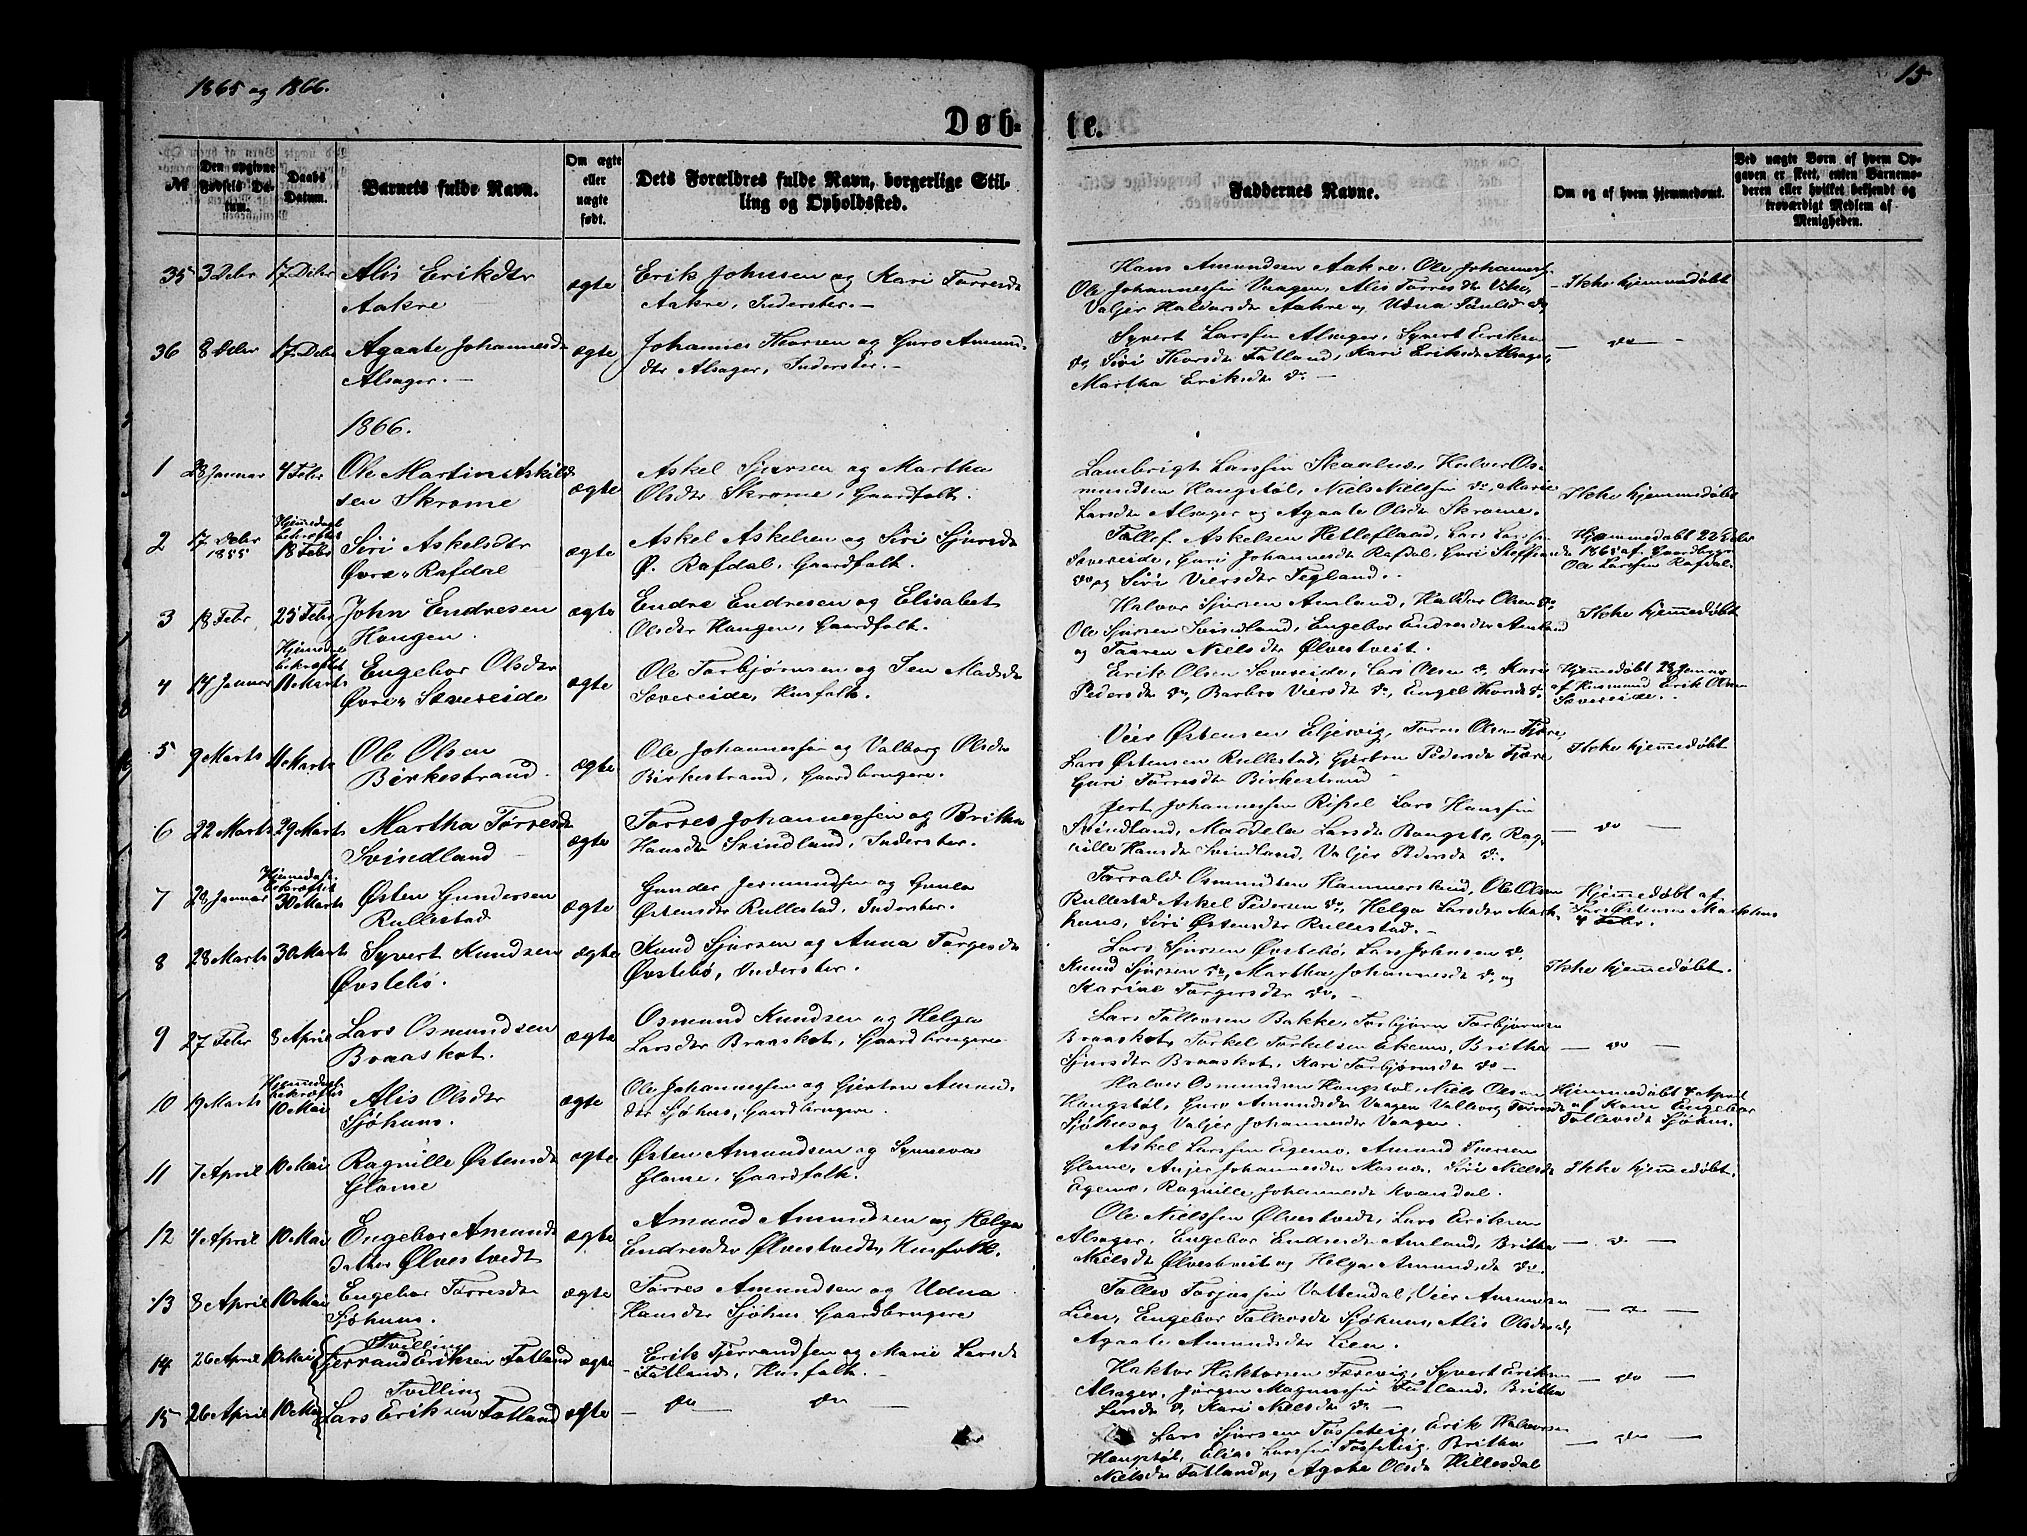 1865 og 1866.
15
Døb-
te.
№
Den opgivne Fødsels Datum.
Daabs Datum.
Barnets fulde Navn.
Om ægte eller uægte født.
Dets Forældres fulde Navn, borgerlige Stilling og Opholdssted.
Faddernes Navne.
Om og af hvem hjemmedøbt.
Ved uægte Børn af hvem Opgaven er skeet, enten Barnemoderen eller hvilket bekjendt og troværdigt Medlem af Menigheden.
35 3 Debr 17 Debr Alis Eriksdtr
Aakre
ægte
Erik Johnsen og Kari Torresdtr
Aakre, Inderster.-
Hans Amundsen Aakre, Ole Johannes
Ole Johannessen Vaagen, Alis Torresdtr
Valjer Haldorsdtr Aakre og Udna Paulsd do
Ikke hjemmedøbt
36 8 Debr 17 Debr Agaate Johannesdtr
Alsager.-
ægte
Johannes Thorsen og Guro Amunds-
dtr Alsager, Inderster.-
Syvert Larssen Alsager, Syvert Eriksen
do, Siri Thorsdtr Fatland, Kari Eriksdtr Alsager,
Martha Eriksdtr do -
- do -
1866.
1 28 Januar 4 Febr Ole Martin Askild-
sen Skrome
ægte
Askel Sjursen og Martha
Olsdtr Skrome, Gaardfolk.
Lambrigt Larssen Skaalnes, Halvor Os-
mundsen Haugstøl, Niels Nielssen do, Marie
Larsdtr Alsager og Agaate Olsdtr Skrome.
Ikke hjemmedøbt
2 17 Debr
1855
Hjemmedaab
bekræftet
18 Febr
Siri Askelsdtr
Øvre Rafdal
ægte
Askel Askelsen og Siri Sjursdtr
Ø. Rafdal, Gaardfolk.
Tollef Askelsen Helleflaad, Lars Larssen
Sævereide, Guri Johannesdtr Rafdal, Guri Steffensd
do og Siri Viersdtr Tegland.
Hjemmedøbt 22 Debr
1865 af Gaardbruger
Ole Larssen Rafdal.
3 18 Febr 25 Febr John Endresen
Haugen
ægte
Endre Endresen og Elisabet
Olsdtr Haugen, Gaardfolk.
Halvor Sjursen Amland, Haldor Olsen do
Ole Sjursen Svindland, Engebor Endresdtr Amland
og Taaren Nielsdtr Ølvestveit.
Ikke hjemmedøbt
4 14 Januar
Hjemmed
bekræftet
11 Marts
Engebor Olsdtr
Øvre Sævereide
ægte
Ole Torbjørnsen og Jen Madsdtr
Sævereide, Husfolk.
Erik Olsen Sævereide, Lars Olsen do, Kari
Pedersdtr do, Barbro Viersdtr do, Engel Thorsdtr do
Hjemmedøbt 28 Januar
af Husmand Erik Olsen
Sævereide.
5 9 Marts 11 Marts Ole Olsen
Birkestrand.
ægte
Ole Johannessen og Valborg Olsdtr
Birkestrand, Gaardbrugere.
Vier Østensen Eljervig, Torres Olsen Fjære
Lars Østensen Rullestad, Gjertru Pedersdtr Fjære
Guri Torresdtr Birkestrand
Ikke hjemmedøbt
6 22 Marts 29 Marts Martha Torresdtr
Svindland
ægte
Torres Johannessen og Britha
Hansdtr Svindland, Inderster.
Gert Johannessen Lars Hanssen
Svindland, Magdela Larsdtr Rag-
nille Hansdtr Svindland, Valjer Pedersdtr do.
- do -
7 28 Januar
Hjemmedaab
bekræftet
30 Marts
Østen Gundersen
Rullestad
ægte
Gunder Jermundsen og Gunla
Østensdtr Rullestad, Inderster.
Torvald Osmundsen Hammersland, Ole Olsen
Rullestad Askel Pedersen do, Helga Larsdtr Mark-
huus, Siri Østensdtr Rullestad.-
Hjemmedøbt af
4 Febr.
8 28 Marts 30 Marts Syvert Knudsen
Øvstebø.
ægte
Knud Sjursen og Anna Torgersdtr
Øvstebø, Inderster.
Lars Sjursen Øvstebø, Lars Johnsen do
Knud Sjursen do, Martha Johannesdtr do og
Karine Torgersdtr do.-
Ikke hjemmedøbt.
9 27 Febr 8 April Lars Osmundsen
Braaskot.
ægte
Osmund Knudsen og Helga
Larsdtr Braaskot, Gaardbrugere
Lars Tollevsen Bakke, Torbjørn Torbjørnsen
Braaskot, Torkel Torkelsen Ekemo, Britha
Sjursdtr Braaskot, Kari Torbjørnsdtr do -
- do -
10 19 Marts
Hjemmedaab
bekræftet
10 Mai
Alis Olsdtr
Sjøhuus.
ægte
Ole Johannessen og Gjertru Amunds-
dtr Sjøhus, Gaardbrugere.
Halvor Osmundsen Haugstøl, Niels Olsen
Haugstøl, Guro Amundsdtr Vaagen Valborg Torresdtr
Sjøhus og Valjer Johannesdtr Vaagen.
Hjemmedøbt 4 April
af Kone Engebor
Tollevsdtr Sjøhus.
11 7 April 10 Mai Ragnille Østensdtr
Glame
ægte
Østen Amundsen og Synneva
Glame, Gaardfolk.
Askel Larssen Egemo, Amund Iversen
Glame, Anjer Johannesdtr Mosnes, Siri Nielsdtr
Egemo, Ragnille Johannesdtr Kvansdal.
Ikke hjemmedøbt.
12 4 April 10 Mai Engebor Amunds-
datter Ølvestvedt
ægte
Amund Amundsen og Helga
Endresdtr Ølvestvedt, Husfolk.
Ole Nielssen Ølvestvedt, Lars Eriksen
Alsager, Engebor Endresdtr Amland, Britha
Nielsdtr Ølvestveit og Helga Amundsdtr do.
- do -
13 8 April 10 Mai Engebor Torresdtr
Sjøhuus.
ægte
Torres Amundsen og Udna
Hansdtr Sjøhus Gaardbrugere
Tollev Torjussen Vattendal, Vier Amundsen
Lien, Engebor Tollevsdtr Sjøhuus, Alis Olsdtr do
Agaate Amundsdtr Lien.
- do -
14 26 April 10 Mai
Tvilling
Tjerrand Eriksen Fatland
ægte
Erik Tjerrandsen og Marie Larsdtr
Fatland, Husfolk.-
Haktor Haktorsen Færevig, Syvert Eriksen
Alsager, Jørgen Magnussen Fatland, Britha
Larsdtr do, Kari Nielsdtr do -
- do -
15 26 April 10 Mai
Tvilling
Lars Eriksen Fatland
ægte
- do - do -
Lars Sjursen Tosseteig, Erik Halvorsen
Haugstøl, Elias Larssen Tosseteig, Britha
Nielsdtr Fatland og Agate Olsdtr Hillesdal
- do -